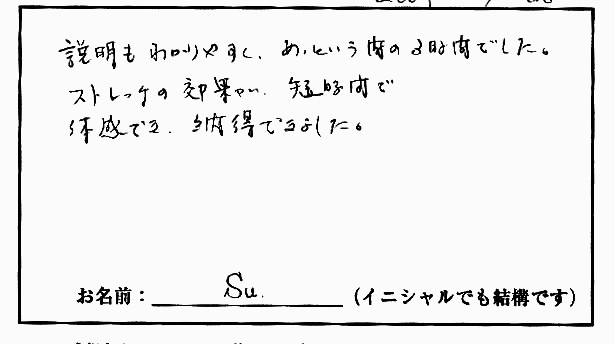 説明もわかりやすく、あっという間の3時間でした。
ストレッチの効果が、短時間で
体感でき、納得できました。
お名前： Su. （イニシャルでも結構です）